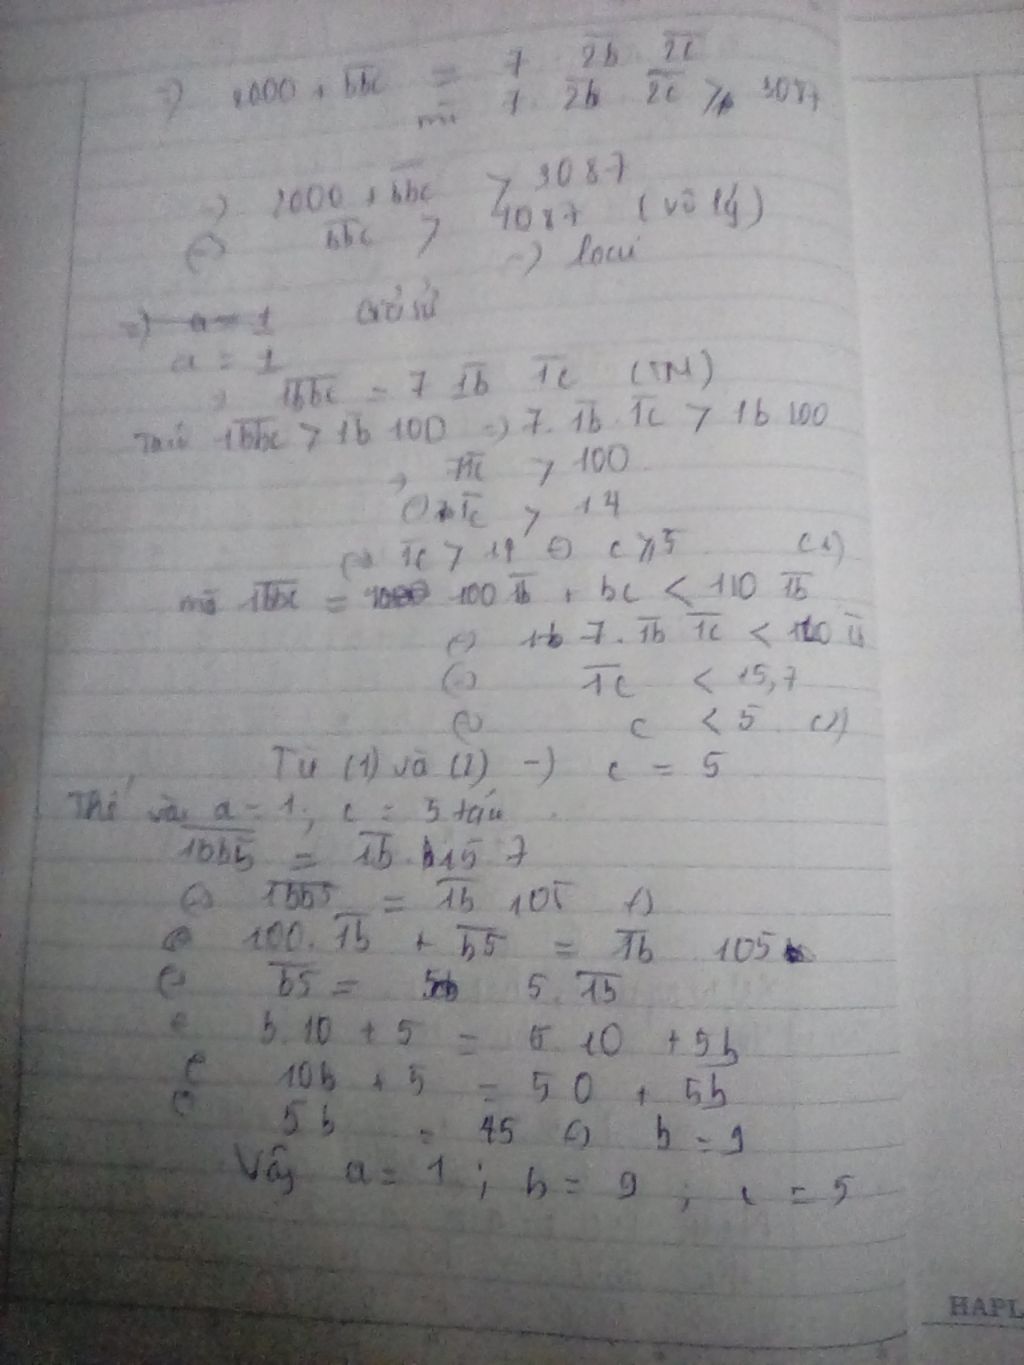 =) 2000 + bbc = 7 2b 2c
mà 7. 2b 2c > 3087
=) 2000 + bbc > 3087
(=) bbc > 1087 (vô lý)
=) loại
=) a = 1 Giả sử
a = 1
1bbc = 7 1b 1c (TM)
1bbc > 1b 100 =) 7. 1b 1c > 1b 100
71c > 100
1c > 14
(=) 1c > 14 (=) c ≥ 5 (1)
mà 1bbc = 100 1b + bc < 110 1b
(=) 7. 1b 1c < 110 1b
(=) 1c < 15,7
(=) c < 5 (2)
Từ (1) và (2) =) c = 5
Thế vào a = 1; c = 5 ta
1bb5 = 1b. 15 7
(=) 1bb5 = 1b 105 (=)
100. 1b + b5 = 1b 105
(=) b5 = 5. 1b
b. 10 + 5 = 5 10 + 5b
10b + 5 = 50 + 5b
5b = 45 (=) b = 9
Vậy a = 1; b = 9; c = 5
HAPL